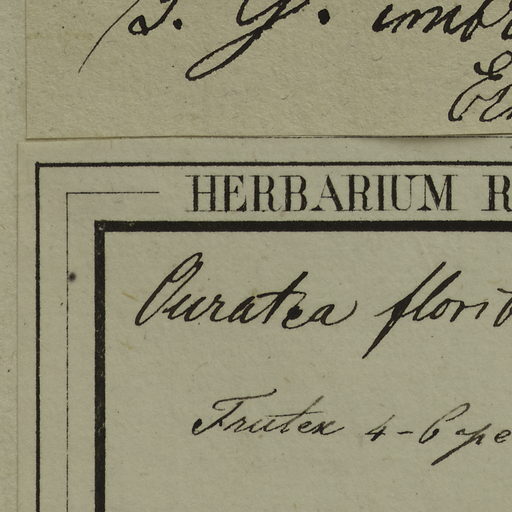 HERBARIUM R
Ouratea florib
Frutex 4-6 pe